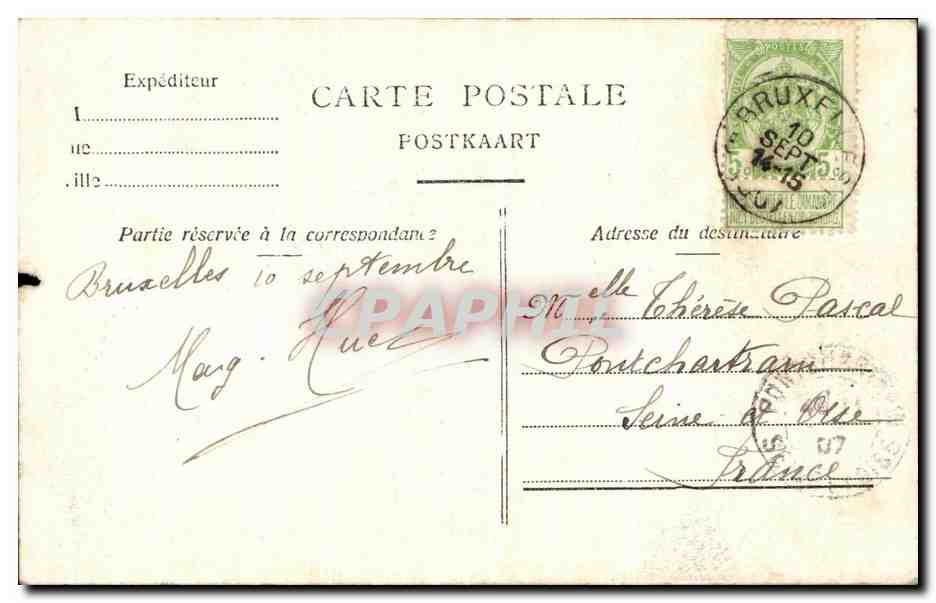 Expéditeur
ue
ille
CARTE POSTALE
POSTKAART
BRUXELLES
10
SEPT
14-15
1907
5
5
Partie réservée à la correspondance
Adresse du destinataire
Bruxelles 10 septembre
Marg. Huet
Melle Thérèse Pascal
Pontchartrain
Seine et Oise
France
07
CPAPHIL